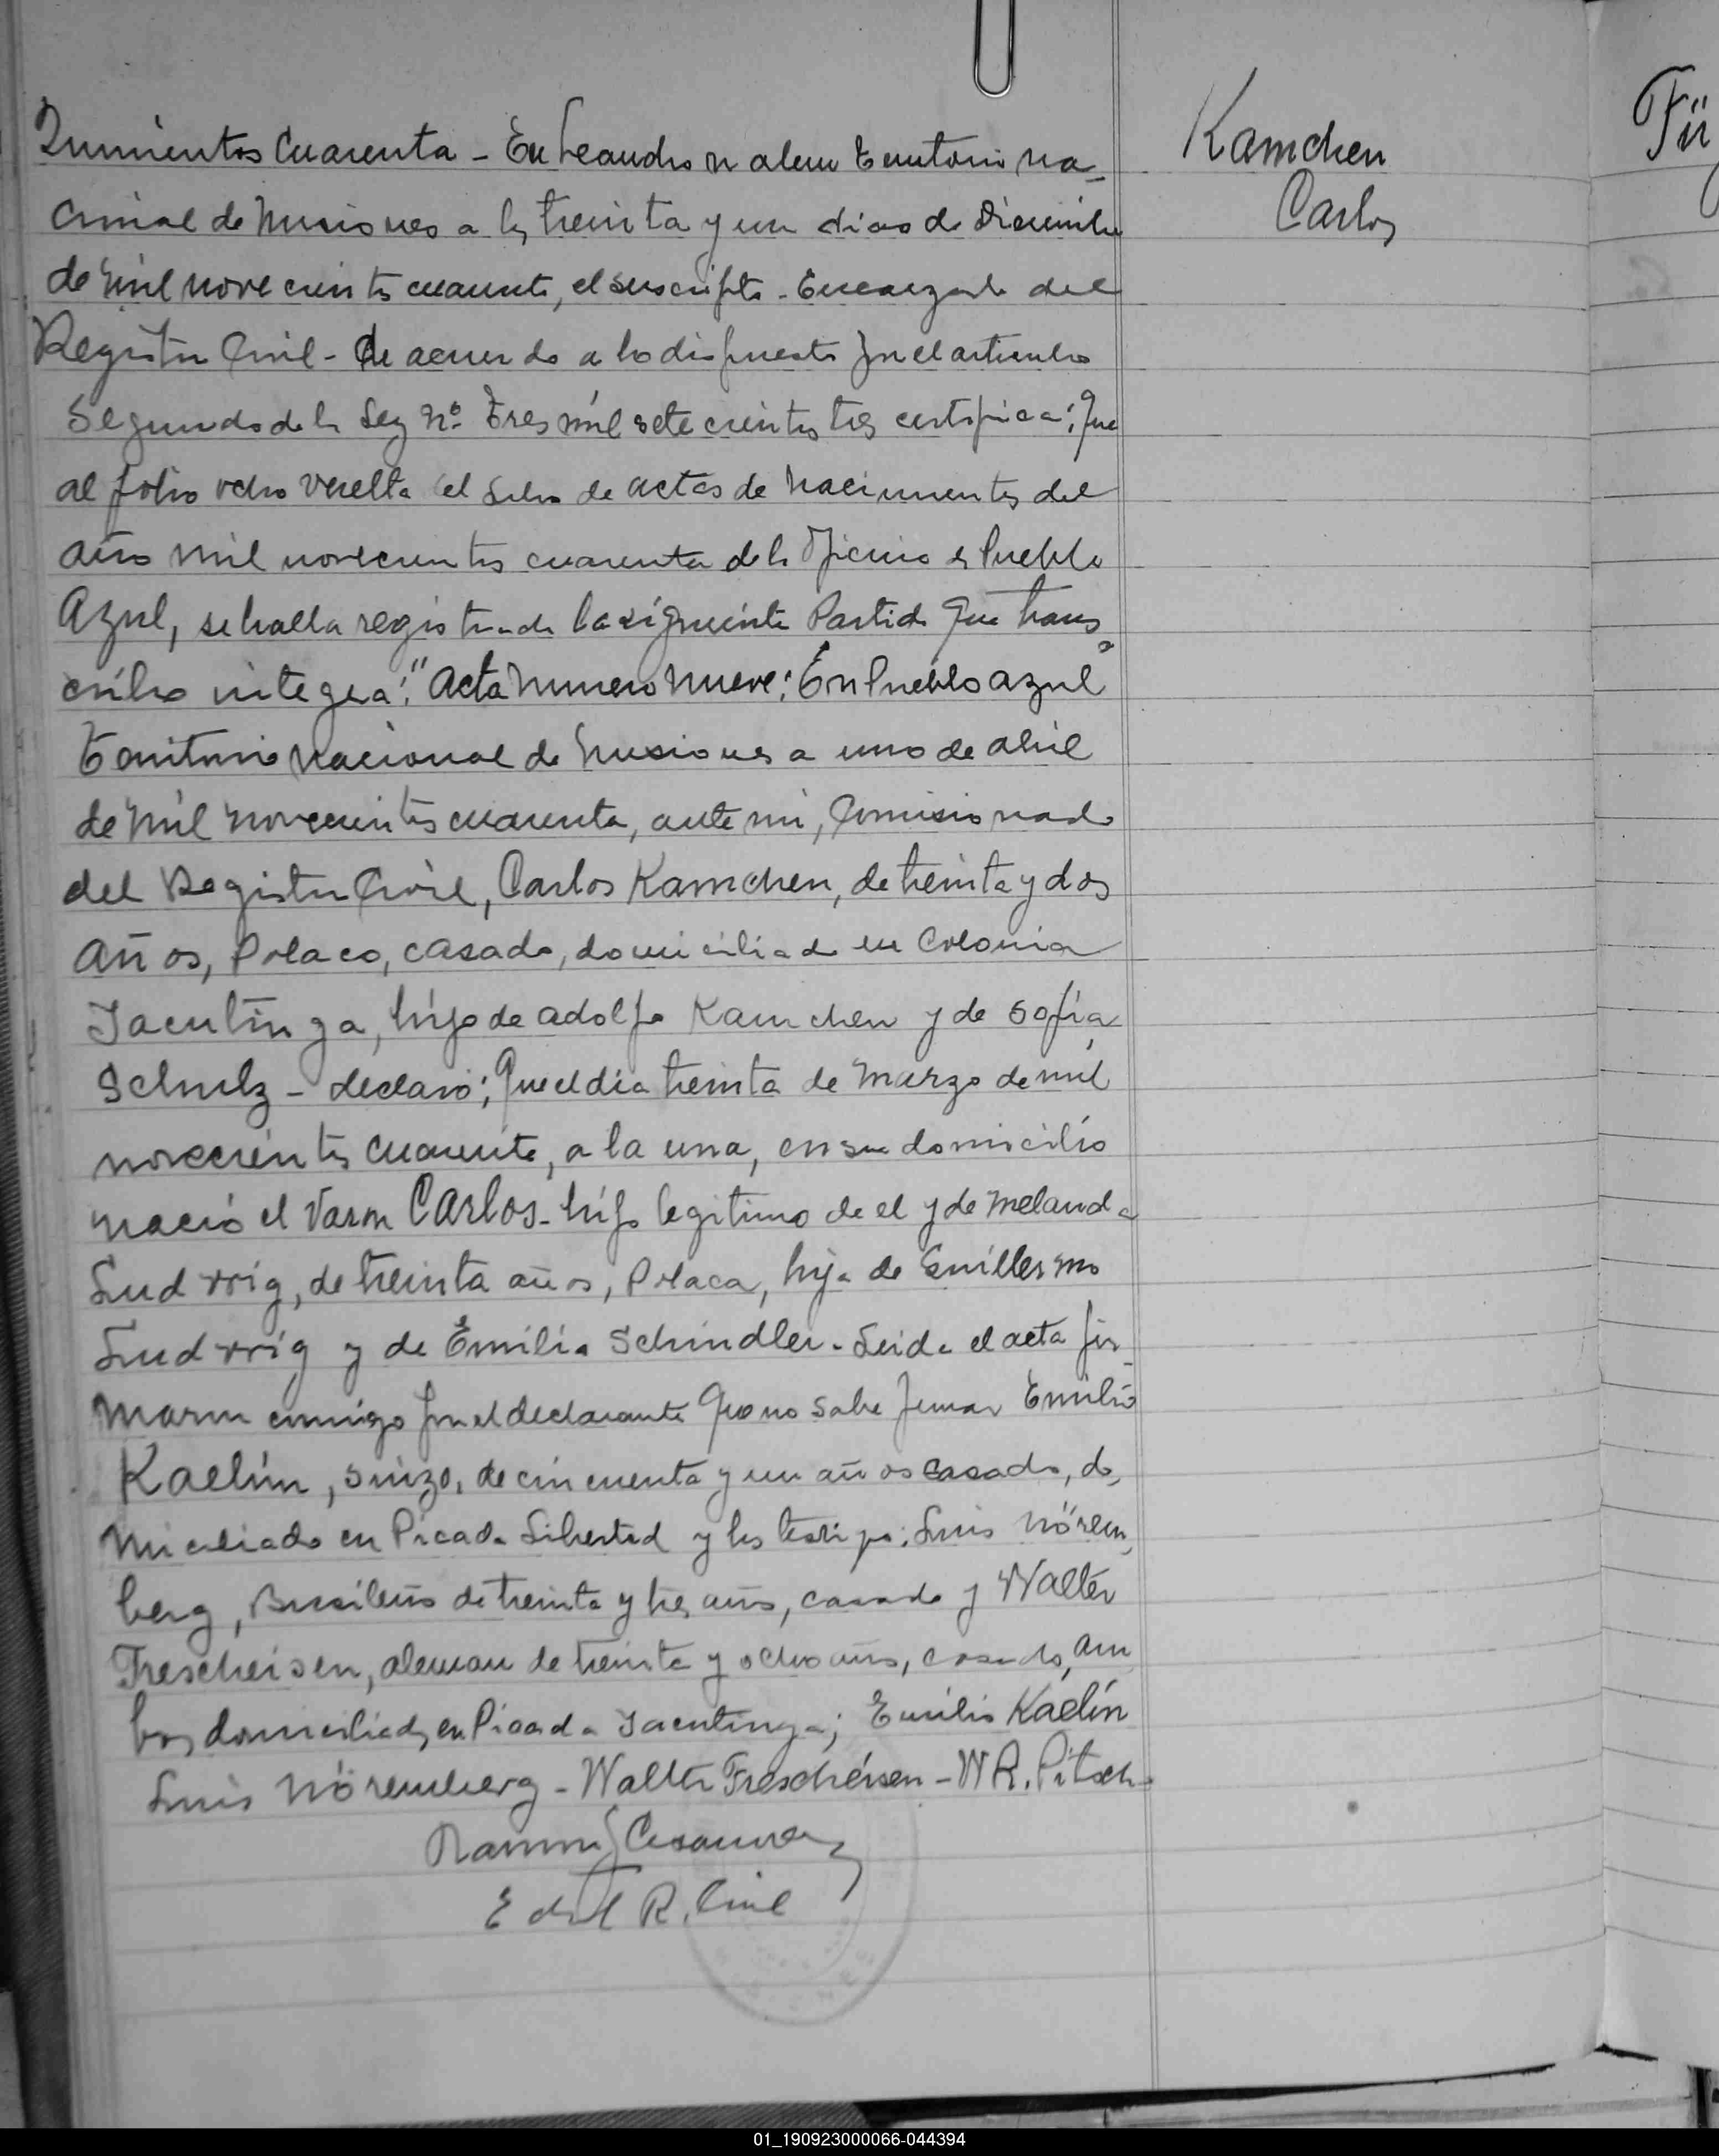 Quinientos Cuarenta - En Leandro N alem Territorio na-
cional de Misiones a los treinta y un dias de Diciembre
de mil novecientos cuarenta, el suscripto - Encargado del
Registro Civil - De acuerdo a lo dispuesto por el articulo
Segundo de la Ley Nº Tres mil setecientos tres certifica: Que
al folio ocho vuelta el Libro de actas de Nacimientos del
año mil novecientos cuarenta de la Oficina de Pueblo
Azul, se halla registrada la siguiente Partida Que trans-
cribo integra: "Acta Numero Nueve: En Pueblo azul
Territorio Nacional de Misiones a uno de abril
de Mil Novecientos cuarenta, ante mi, Comisionado
del Registro Civil, Carlos Kamchen, de treinta y dos
años, Polaco, casado, domiciliado en Colonia
Jacutinga, hijo de adolfo Kamchen y de Sofia
Schulz - declaró; Que el dia treinta de Marzo de mil
novecientos cuarenta, a la una, en su domicilio
nació el Varon CARLOS - hijo legitimo de el y de Melanda
Ludwig, de treinta años, Polaca, hija de Guillermo
Ludwig y de Emilia Schindler. Leida el acta fir-
maron conmigo por el declarante Que no sabe firmar Emilio
Kaelin, suizo, de cincuenta y un años casado, do-
miciliado en Picada Libertad y los testigos: Luis Nörem-
berg, Brasileño de treinta y tres años, casado y Walter
Frescheisen, aleman de treinta y ocho años, casado, am-
bos domiciliados en Picada Jacutinga; Emilio Kaelin
Luis Nöremberg - Walter Frescheisen - W R. Pitsch
Ramon
E del R. Civil
Kamchen
Carlos
Fü
01_190923000066-044394